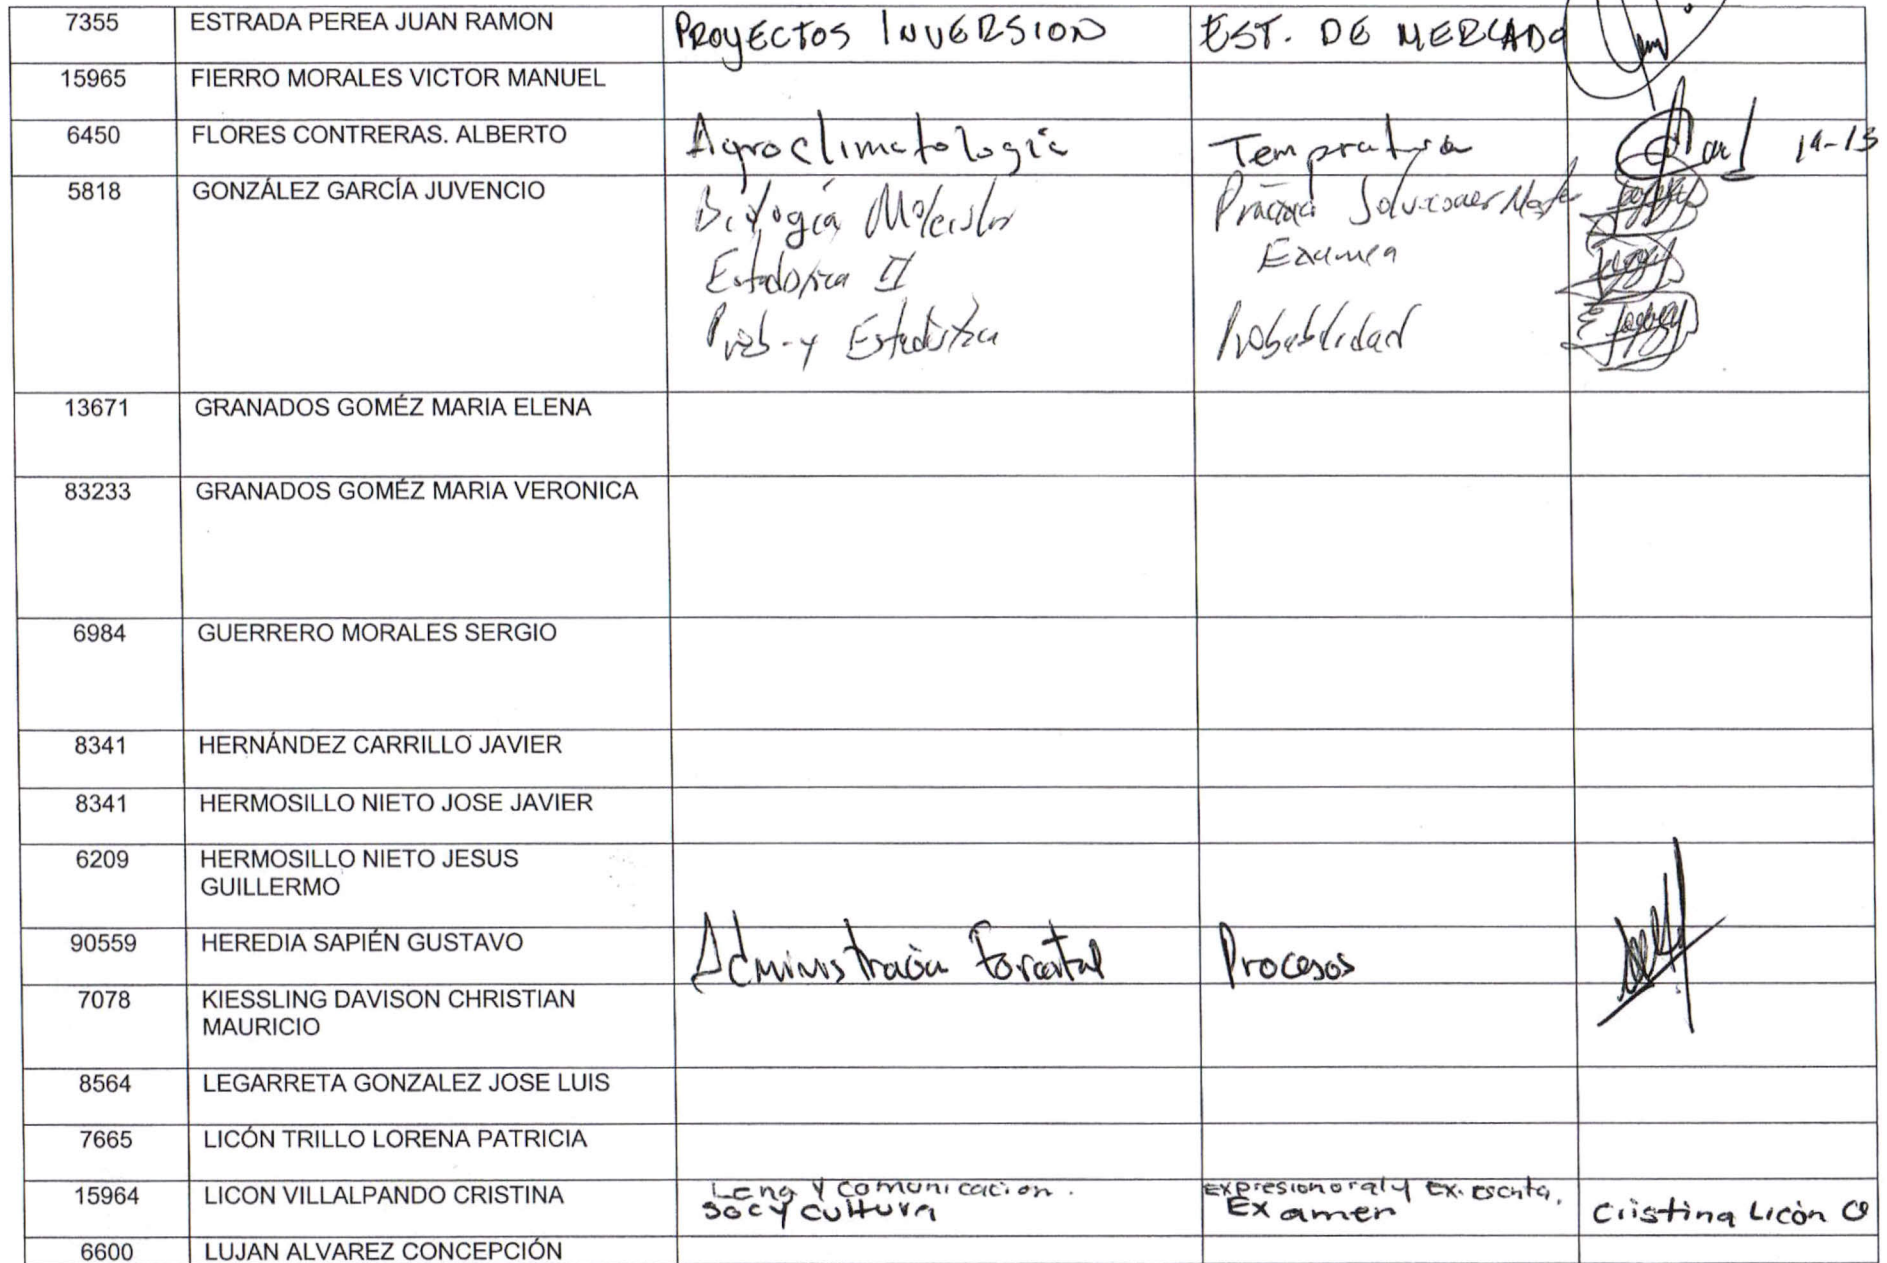 7355 ESTRADA PEREA JUAN RAMON PROYECTOS INVERSION EST. DE MERCADO
15965 FIERRO MORALES VICTOR MANUEL
6450 FLORES CONTRERAS. ALBERTO Agroclimatologia Tempratura 14-13
5818 GONZÁLEZ GARCÍA JUVENCIO Biología Molecular Soluciones
Estadística II Examen
Prob. y Estadística Probabilidad
13671 GRANADOS GOMÉZ MARIA ELENA
83233 GRANADOS GOMÉZ MARIA VERONICA
6984 GUERRERO MORALES SERGIO
8341 HERNÁNDEZ CARRILLO JAVIER
8341 HERMOSILLO NIETO JOSE JAVIER
6209 HERMOSILLO NIETO JESUS
GUILLERMO
90559 HEREDIA SAPIÉN GUSTAVO Administración Forestal Procesos
7078 KIESSLING DAVISON CHRISTIAN
MAURICIO
8564 LEGARRETA GONZALEZ JOSE LUIS
7665 LICÓN TRILLO LORENA PATRICIA
15964 LICON VILLALPANDO CRISTINA Leng y comunicacion. Expresion oral y ex. escrita.
Soc y cultura Examen Cristina Licón
6600 LUJAN ALVAREZ CONCEPCIÓN